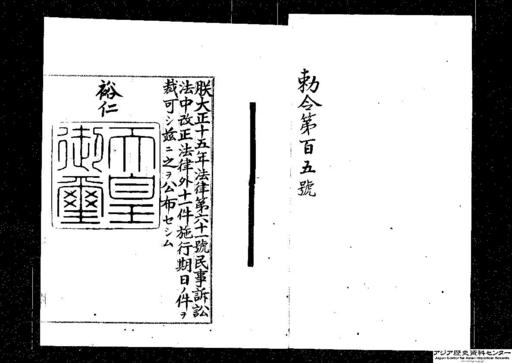 勅令第百五號
朕大正十五年法律第六十一號民事訴訟
法中改正法律外十一件施行期日ノ件ヲ
裁可シ玆ニ之ヲ公布セシム
裕仁
天皇
御璽
アジア歴史資料センター
Japan Center for Asian Historical Records